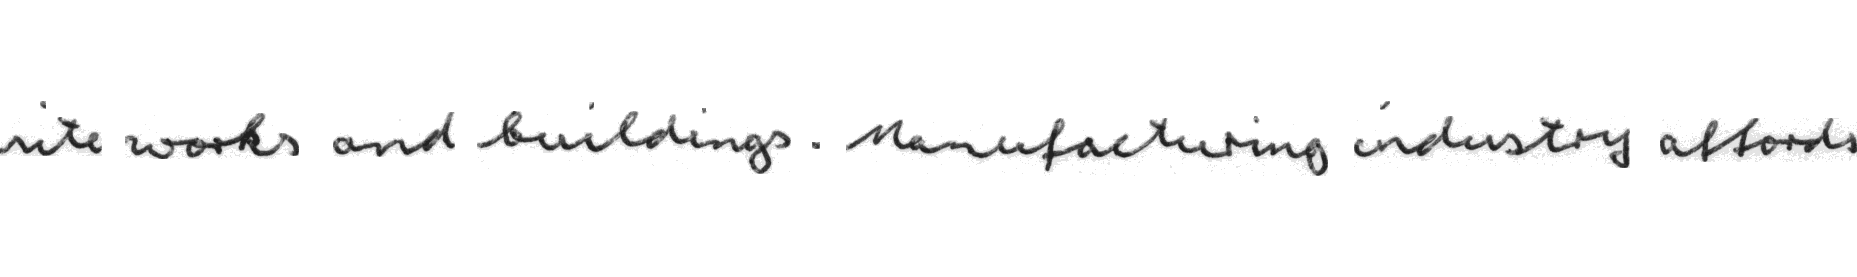 site works and buildings. Manufacturing industry affords